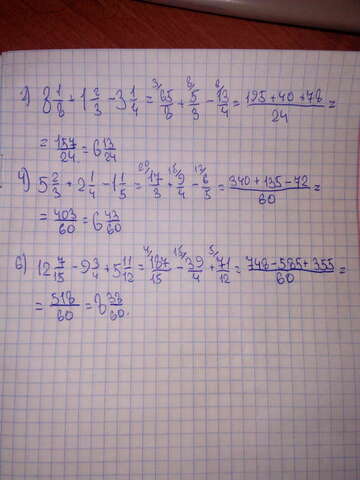 2) 8 1/8 + 1 2/3 - 3 1/4 = 3/ 65/8 + 8/ 5/3 - 6/ 13/4 = (195 + 40 + 78)/24 =
= 157/24 = 6 13/24
4) 5 2/3 + 2 1/4 - 1 1/5 = 20/ 17/3 + 15/ 9/4 - 12/ 6/5 = (340 + 135 - 72)/60 =
= 403/60 = 6 43/60
6) 12 7/15 - 9 3/4 + 5 11/12 = 4/ 187/15 - 15/ 39/4 + 5/ 71/12 = (748 - 585 + 355)/60 =
= 518/60 = 8 38/60.